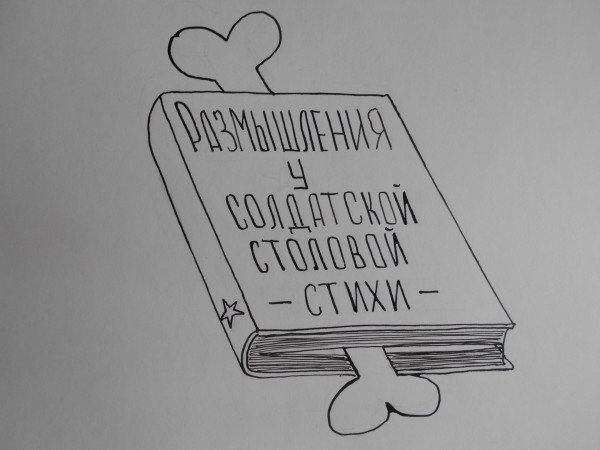 РАЗМЫШЛЕНИЯ
У
СОЛДАТСКОЙ
СТОЛОВОЙ
- СТИХИ -